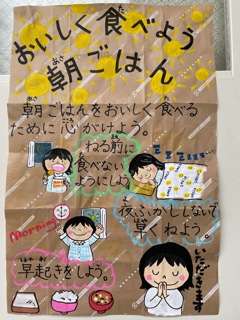 おいしく食べよう
朝ごはん
朝ごはんをおいしく食べる
ために心がけよう。
ねる前に
食べない
ようにしよう
zzz
夜ふかししないで
早くねよう。
Morning
早起きをしよう。
いただきます